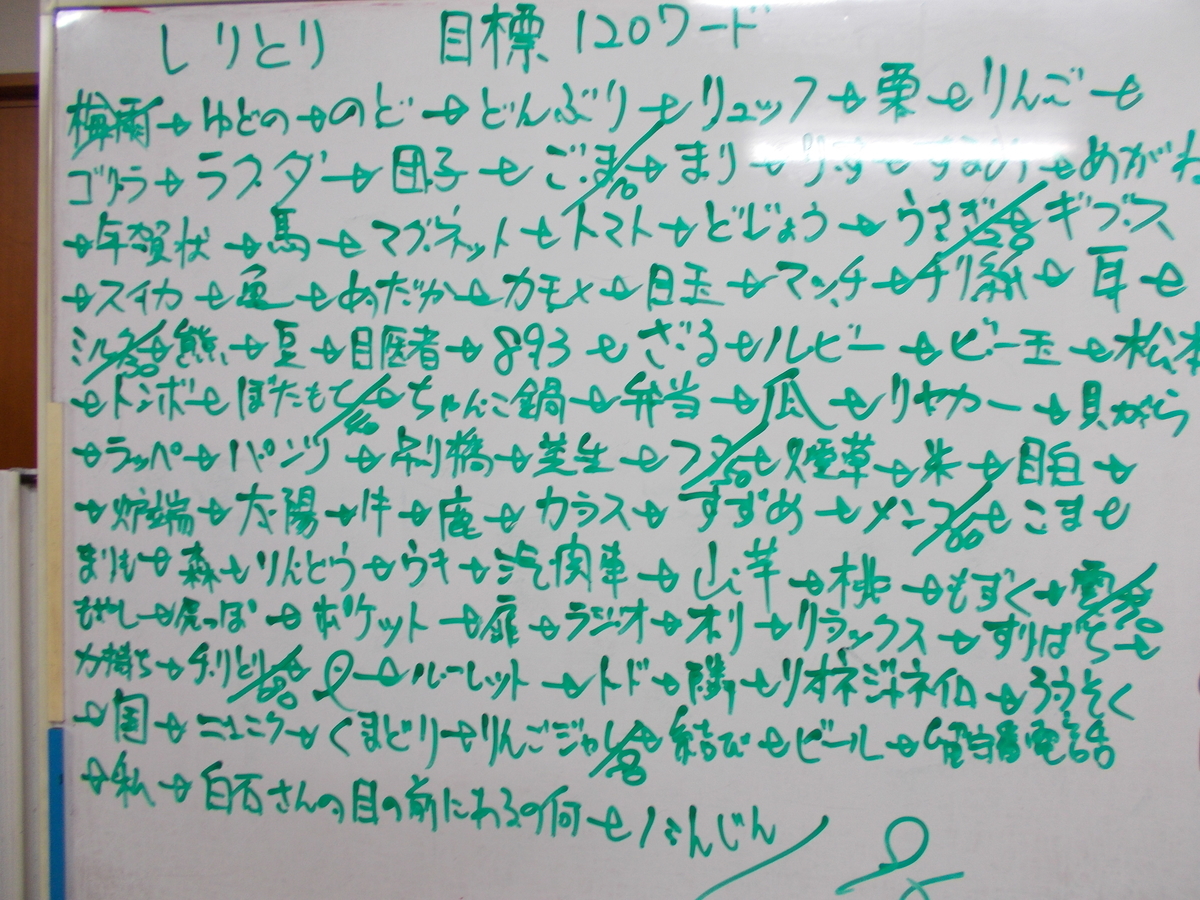 しりとり 目標120ワード
梅雨→ゆどの→のど→どんぶり→リュック→栗→りんご→
ゴリラ→ラクダ→団子→ごま10→まり→りす→すねめ→めがね
→年賀状→馬→マグネット→トマト→どじょう→うさぎ20→ギブス
→スイカ→亀→めだか→カモメ→目玉→マッチ→チリ紙→耳→
ミルク30→熊→豆→目医者→893→ざる→ルビー→ビー玉→松本
→トンボ→ぼたもち40→ちゃんこ鍋→弁当→瓜→リヤカー→貝がら
→ラッパ→パンツ→吊り橋→芝生→フタ50→煙草→米→目白→
→炉端→太陽→牛→鹿→カラス→すずめ→メンコ60→こま→
まりも→森→りんどう→うき→汽関車→山芋→桃→もずく→雲70→
もやし→尻っぽ→ポケット→扉→ラジオ→オリ→リラックス→すりばち→
力持ち→チリとり80→リール→ルーレット→トド→隣→リオネジャネイロ→ろうそく
→国→ニュニク→くまどり→りんごジャム90→結び→ビール→留守番電話
→私→白石さんの目の前にあるの何→にんじん